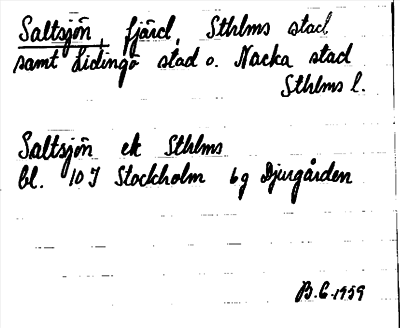 Saltsjön, fjärd, Sthlms stad
samt Lidingö stad o. Nacka stad
Sthlms l.
Saltsjön ek Sthlms
bl. 10 I Stockholm 6g Djurgården
B.G. 1959